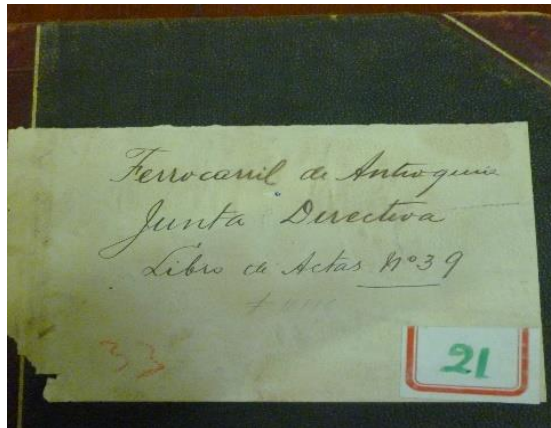 Ferrocarril de Antioquia
Junta Directiva
Libro de Actas Nº 39
33
21